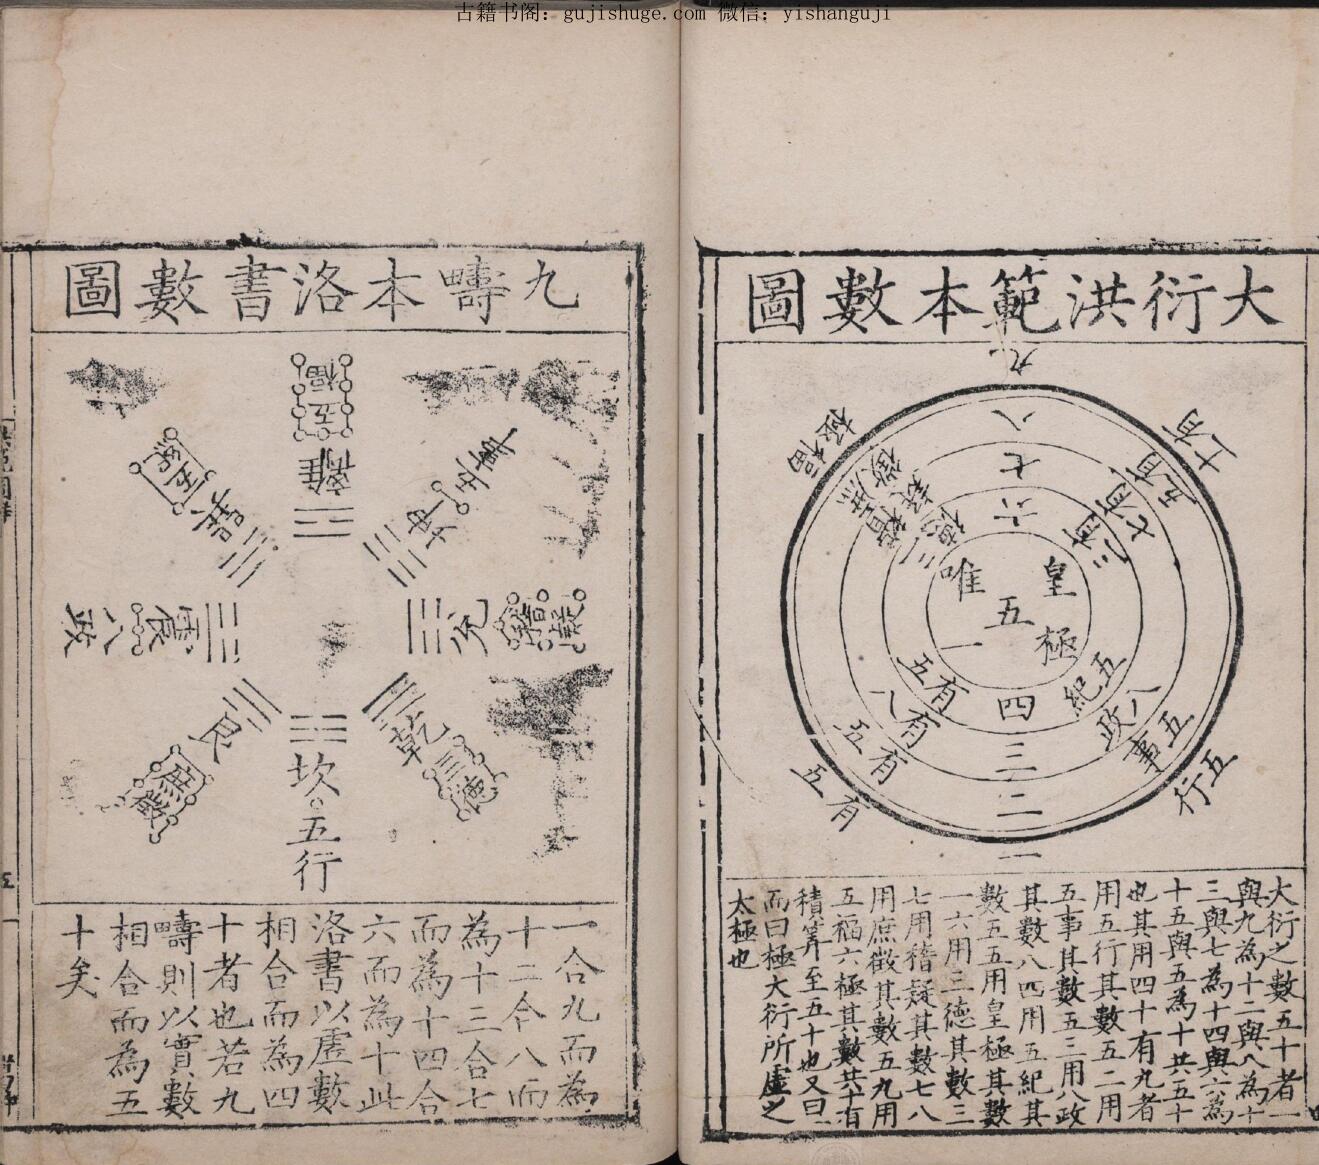 古籍书阁：gujishuge.com 微信：yishanguji
大衍洪範本數圖
九
八
七
六
五
四
三
二
一
皇極
唯一
五紀
八政
五事
五行
五有
八有
五有
五有
三德
稽疑
庶徵
福極
大衍之數五十者一
與九為十二與八為十
三與七為十四與六為
十五與五為十共五十
也其用四十有九者一
用五行其數五二用
五事其數五三用八政
其數八四用五紀其
數五五用皇極其數
一六用三德其數三
七用稽疑其數七八
用庶徵其數五九用
五福六極其數共十有
一積筭至五十也又曰
而曰極大衍所虛之
太極也
九疇本洛書數圖
五福
離
五事
坤
稽疑
兌
三德
乾
坎
五行
庶徵
艮
八政
震
五紀
巽
一合九而為
十二合八而
為十三合七
而為十四合
六而為十此
洛書以虛數
相合而為四
十者也若九
疇則以實數
相合而為五
十矣
五